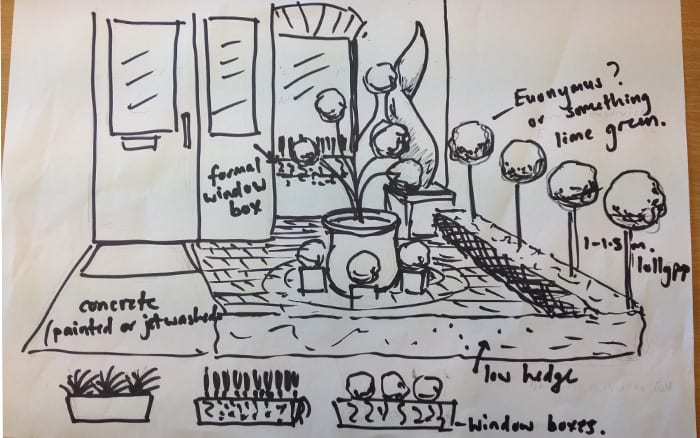 Euonymus?
or something
lime green.
formal
window
box
1-1.5m.
lollypop
concrete
(painted or jetwashed)
low hedge
window boxes.